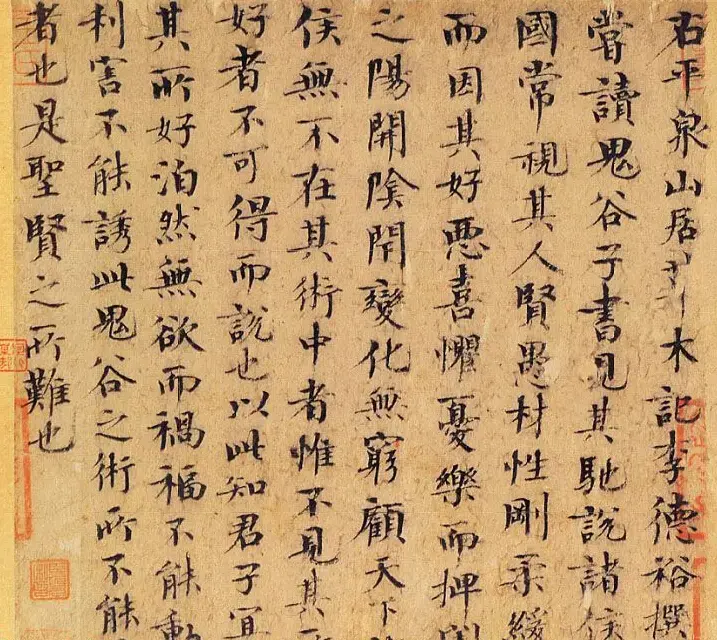 右平泉山居木記李德裕撰
嘗讀鬼谷子書見其馳說諸侯
國常視其人賢愚材性剛柔緩
而因其好惡喜懼憂樂而捭闔
之陽開陰閉變化無窮顧天下
侯無不在其術中者惟不見其
好者不可得而說也以此知君子宜
其所好泊然無欲而禍福不能動
利害不能誘此鬼谷之術所不能
者也是聖賢之所難也